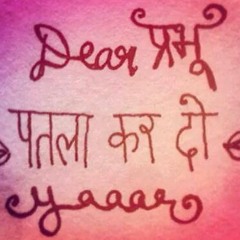 Dear प्रभू
पतला कर दो
yaaar